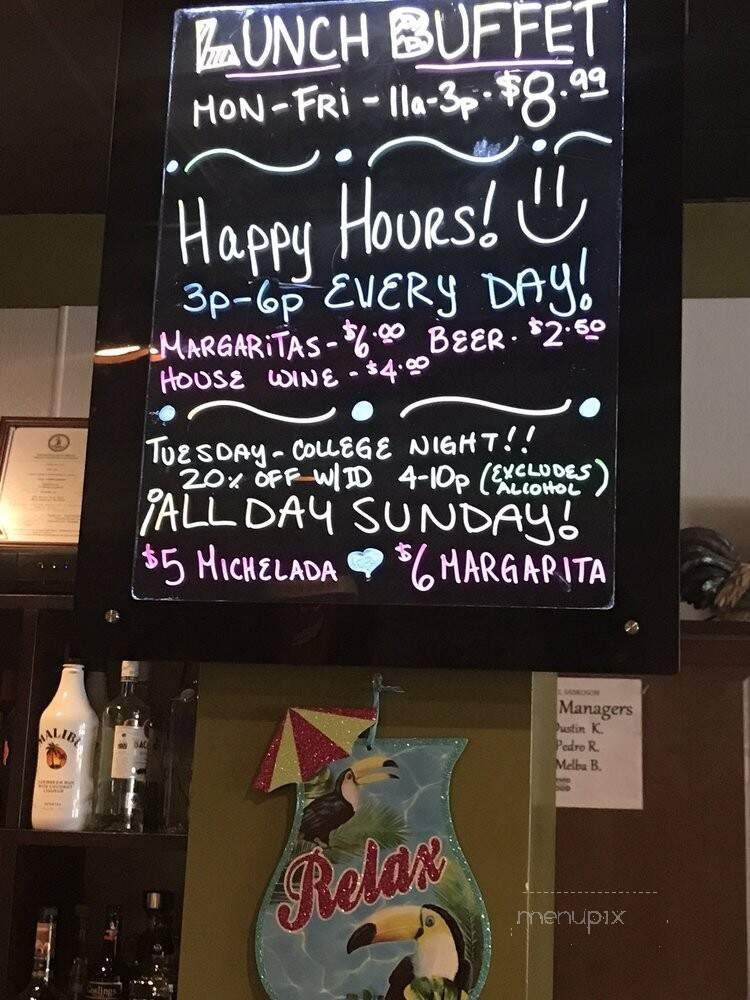 LUNCH BUFFET
MON-FRI-11a-3p-$8.99
Happy Hours!
3p-6p EVERY DAY!
MARGARITAS-$6.00 BEER-$2.50
HOUSE WINE-$4.00
TUESDAY-COLLEGE NIGHT!!
20% OFF W/ID 4-10p (EXCLUDES ALCOHOL)
¡ALL DAY SUNDAY!
$5 MICHELADA $6 MARGARITA
MALIBU
Managers
Dustin K.
Pedro R.
Melba B.
Relax
menupix